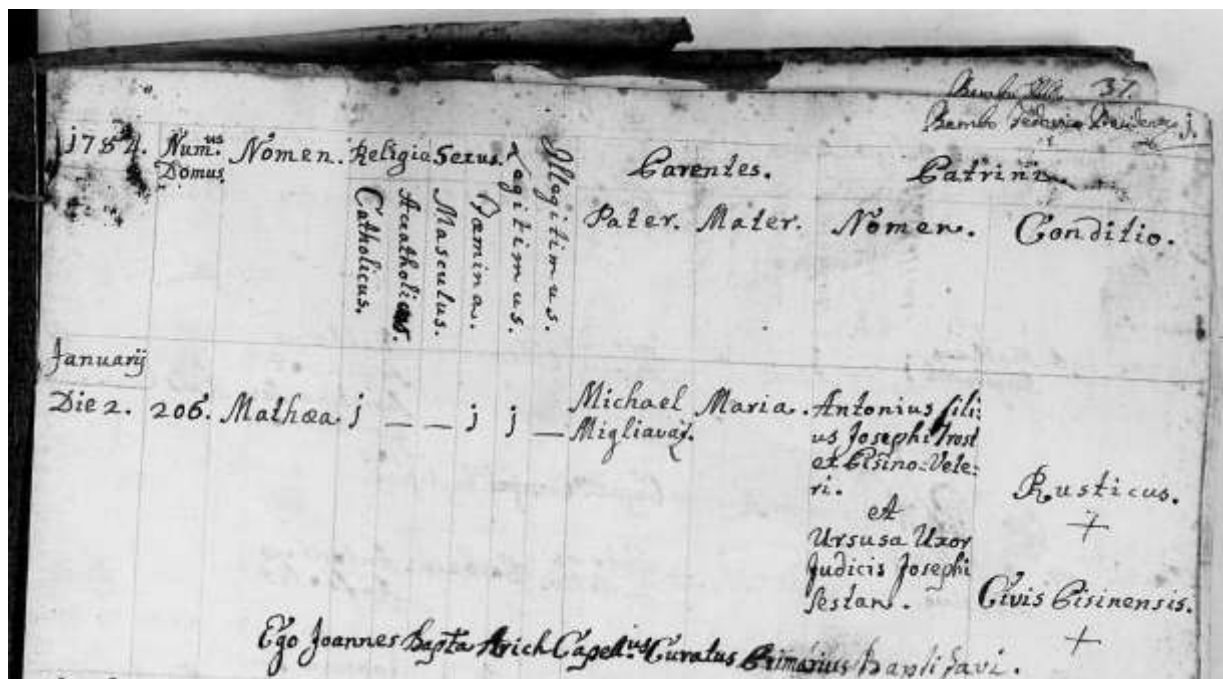 37.
Bembo Federico j.
j784. Num.us Nomen. Religio Sexus. Legitimus. Illegitimus. Parentes. Patrini
Domus
Catholicus. Accatholicus. Masculus. Fæmina. Pater. Mater. Nomen. Conditio.
Januarij
Die 2. 206. Mathæa j — — j j — Michael Maria. Antonius fili:
Migliavaz. us Josephi Trost
ex Pisino-Vete:
ri. Rusticus.
et +
Ursusa Uxor
Judicis Josephi
Sestan. Civis Pisinensis.
+
Ego Joannes Bapta Arich Capell.us Curatus Primarius baptisavi.